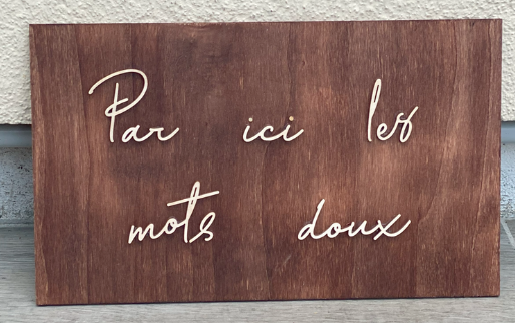 Par ici les
mots doux